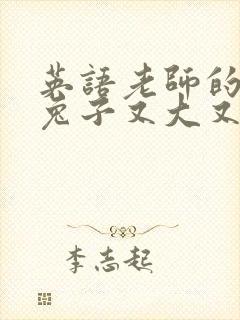 英語老師的
兔子又大又
李志起